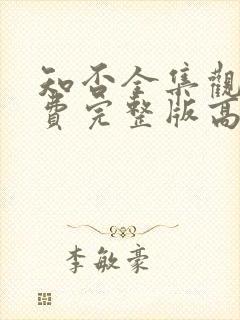 知否全集觀
費完整版高
李敏豪